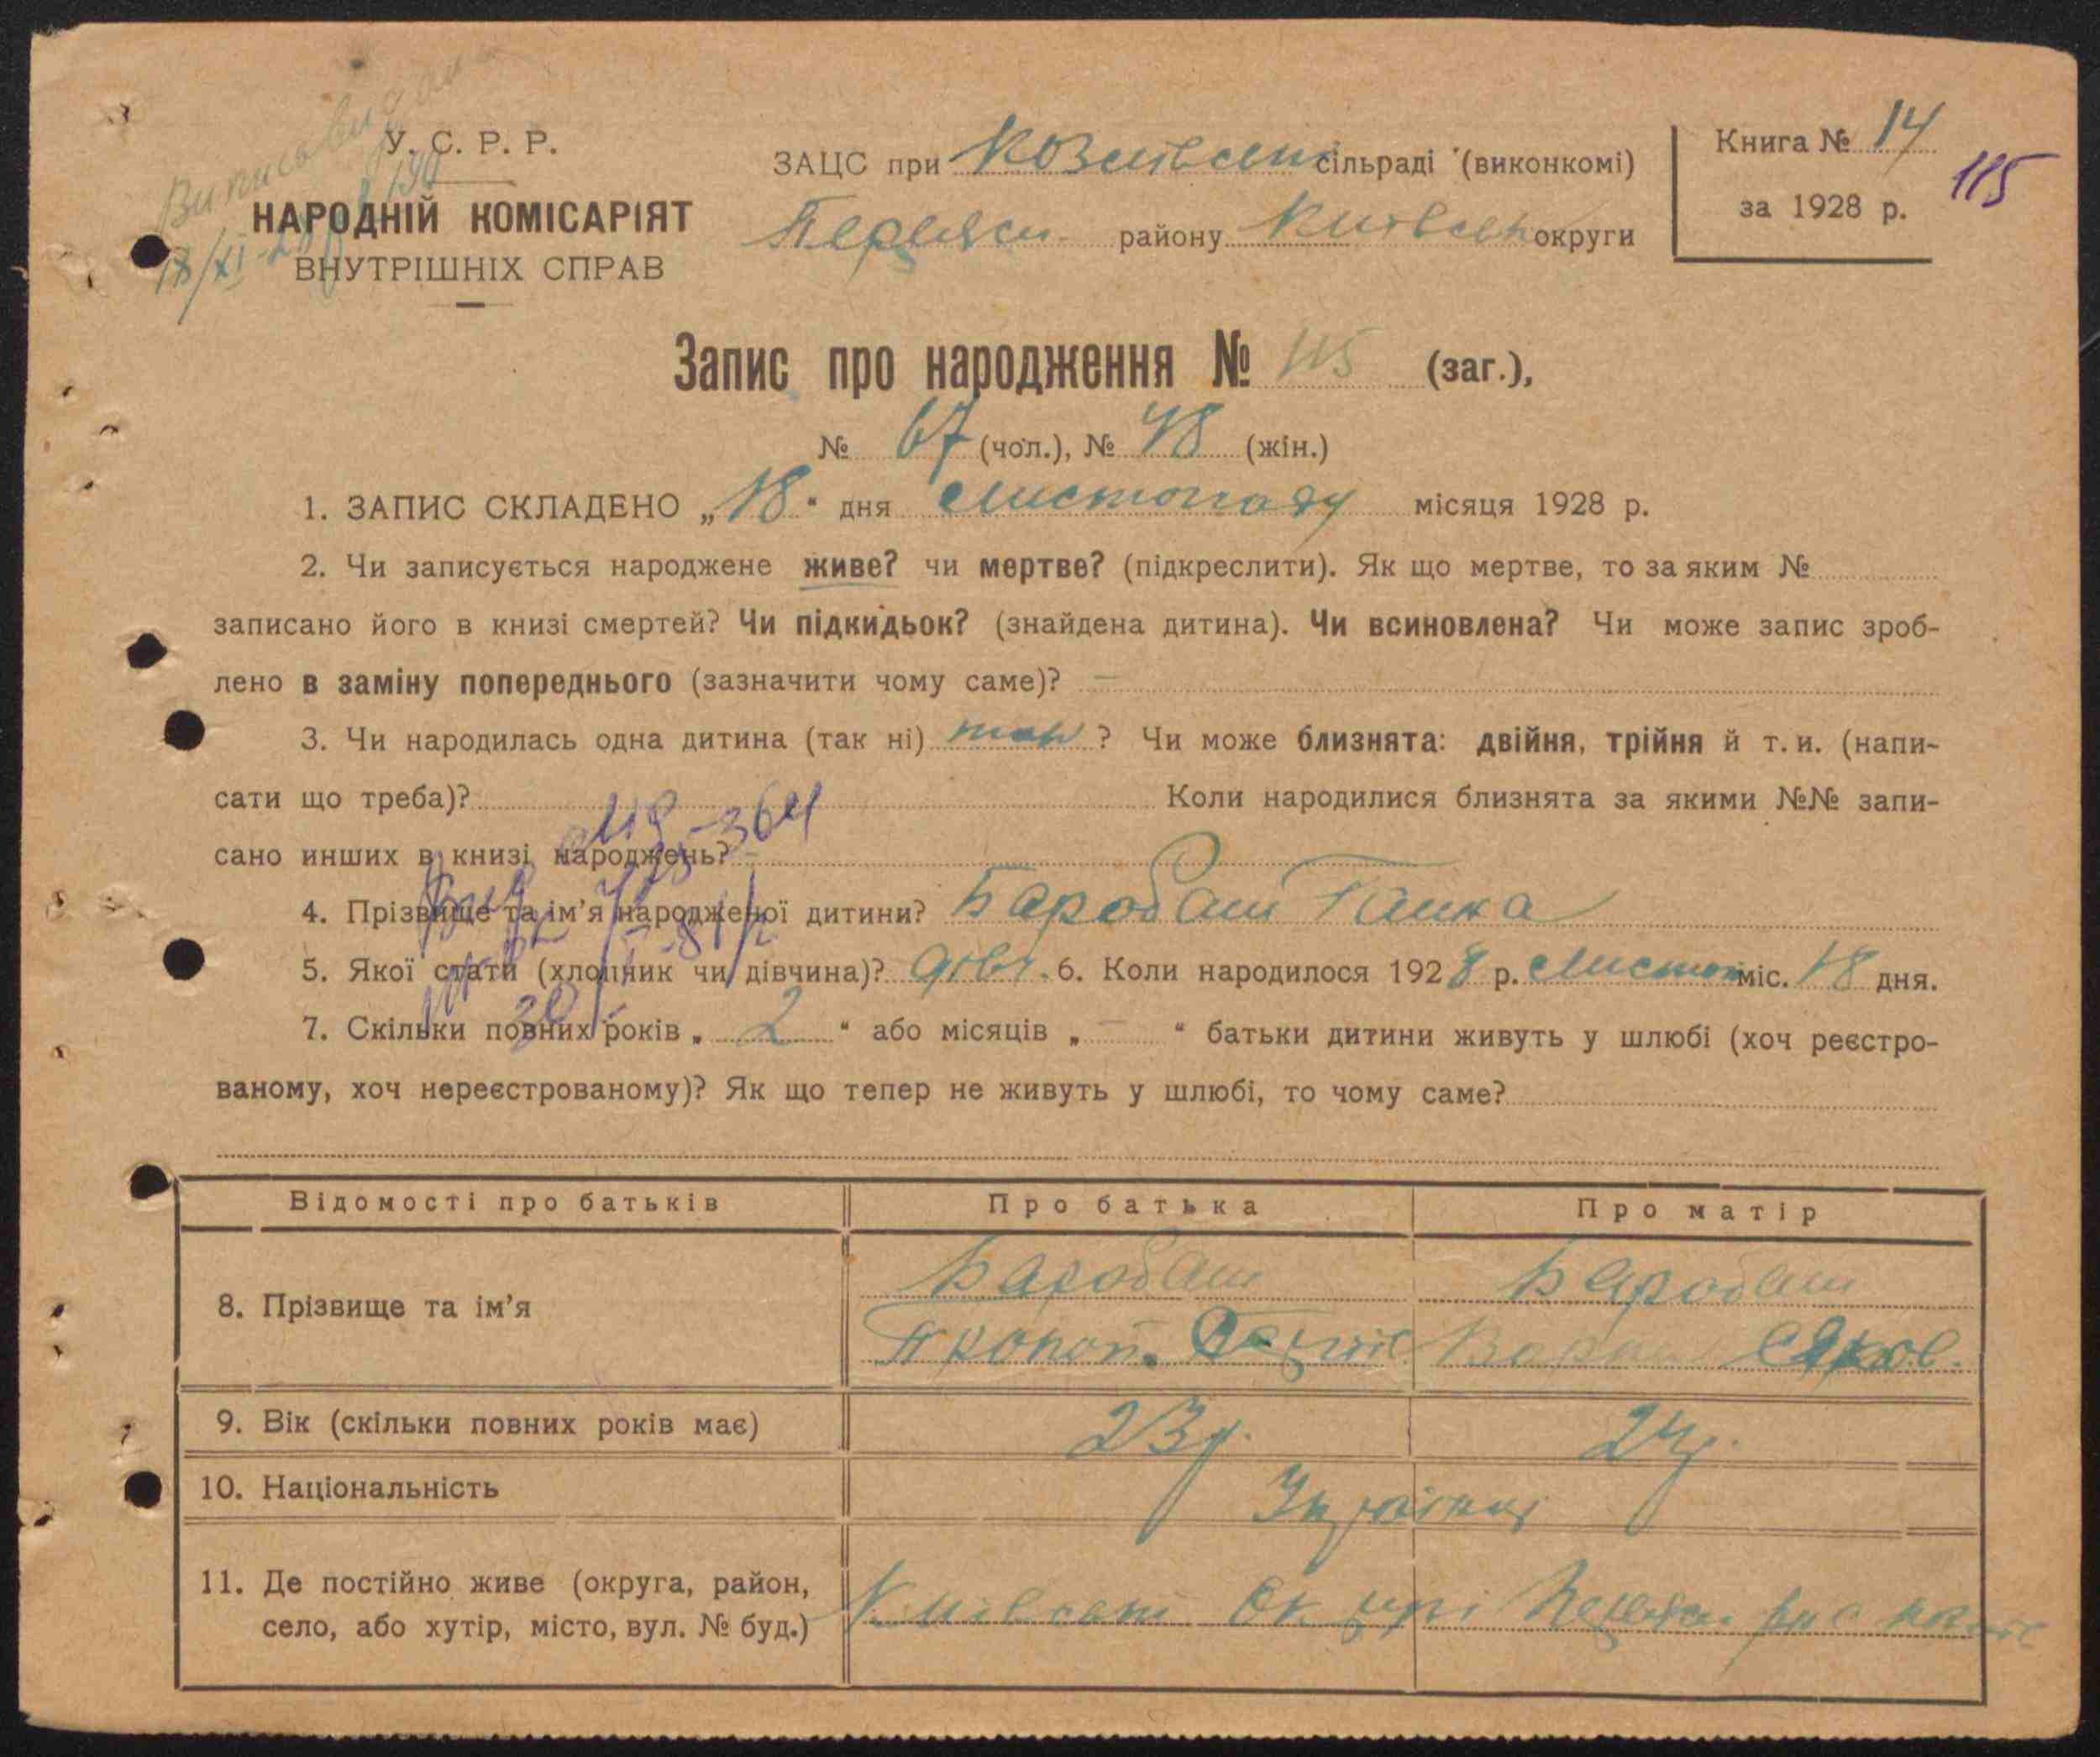 Виписа видана
У. С. Р. Р.
НАРОДНІЙ КОМІСАРІЯТ
ВНУТРІШНІХ СПРАВ
ЗАЦС при Козитвсен сільраді (виконкомі)
Переяс району Київсен округи
Книга № 14
за 1928 р.
115
Запис про народження № 115 (заг.),
№ 67 (чол.), № 48 (жін.)
1. ЗАПИС СКЛАДЕНО „18“ дня Листопаду місяця 1928 р.
2. Чи записується народжене живе? чи мертве? (підкреслити). Як що мертве, то за яким №
записано його в книзі смертей? Чи підкидьок? (знайдена дитина). Чи всиновлена? Чи може запис зроб-
лено в заміну попереднього (зазначити чому саме)? —
3. Чи народилась одна дитина (так ні) так ? Чи може близнята: двійня, трійня й т. и. (напи-
сати що треба)? Коли народилися близнята за якими №№ запи-
сано инших в книзі народжень? —
4. Прізвище та ім’я народженої дитини? Баробаш Ганна
5. Якої стати (хлопчик чи дівчина)? дівч. 6. Коли народилося 1928 р. Листоп міс. 18 дня.
7. Скільки повних років „ 2 “ або місяців „ — “ батьки дитини живуть у шлюбі (хоч реєстро-
ваному, хоч нереєстрованому)? Як що тепер не живуть у шлюбі, то чому саме?
Відомості про батьків Про батька Про матір
8. Прізвище та ім’я Баробаш Баробаш
Прокоп. Яков.
9. Вік (скільки повних років має) 23р. 24р.
10. Національність Українці
11. Де постійно живе (округа, район,
село, або хутір, місто, вул. № буд.) Київсен Окрузі Переяс